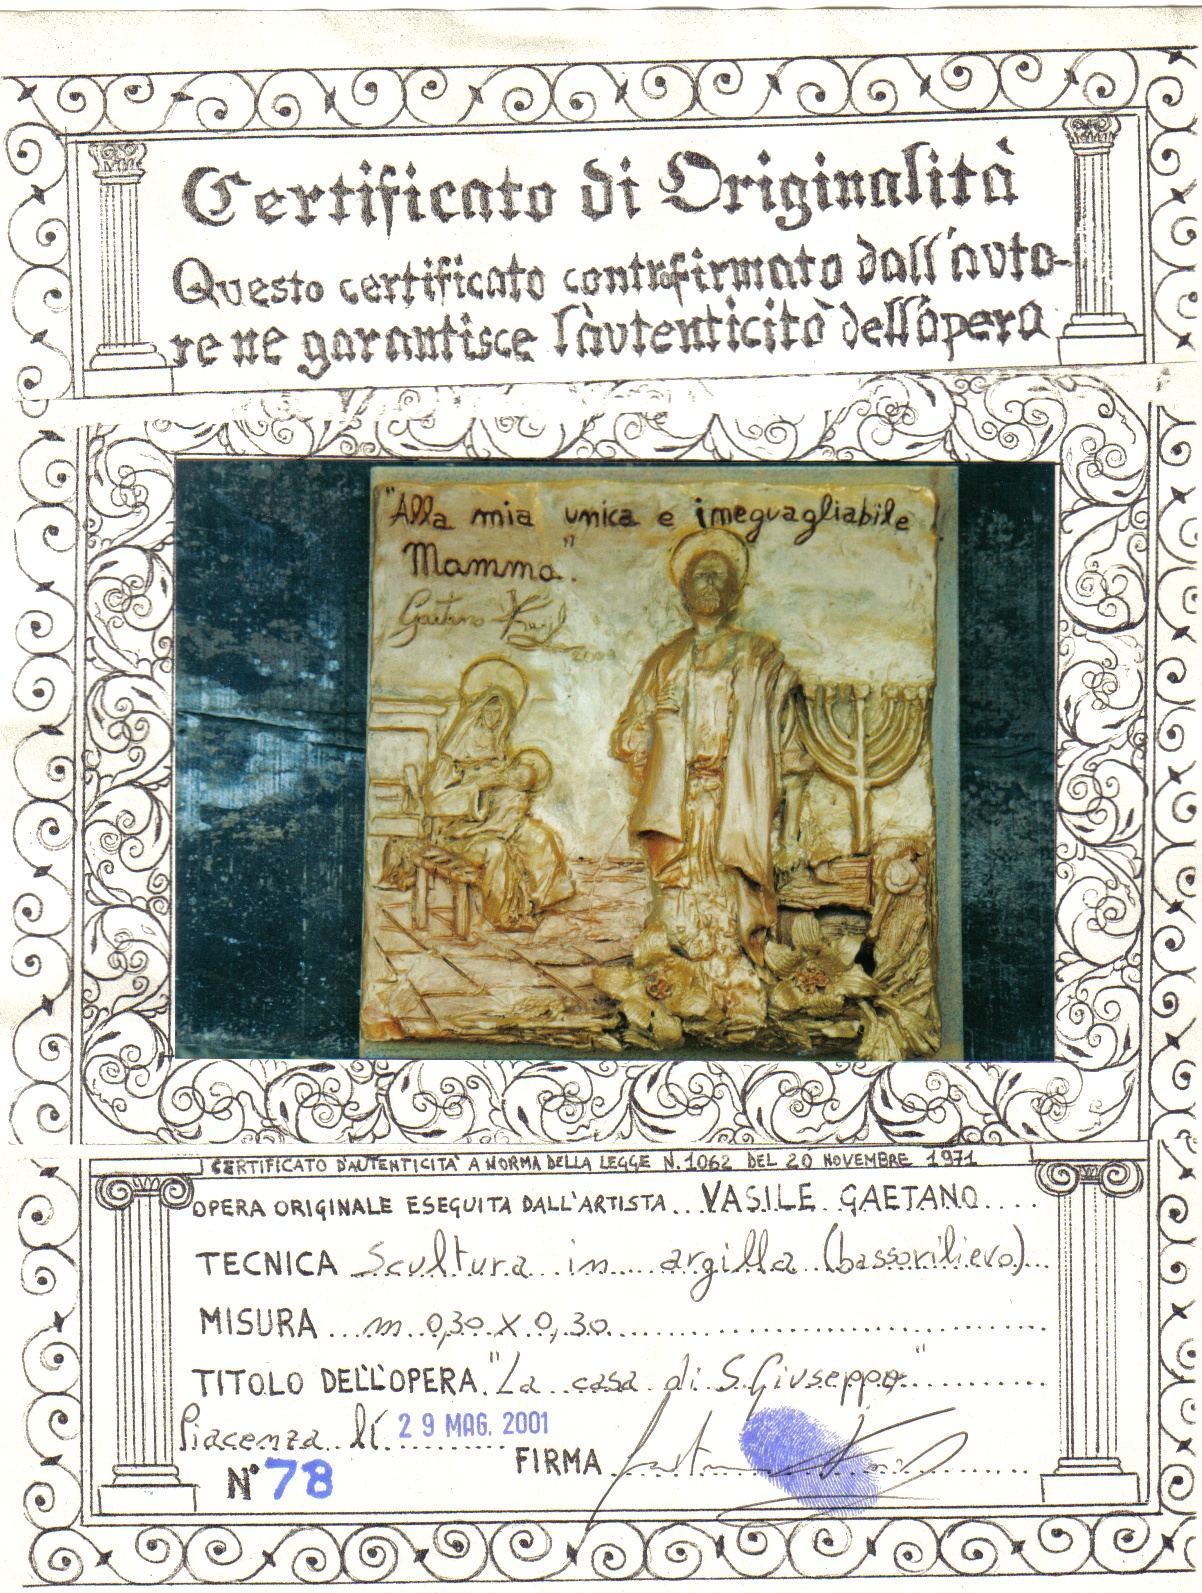 Certificato di Originalità
Questo certificato controfirmato dall'auto-
re ne garantisce l'autenticità dell'opera
"Alla mia unica e ineguagliabile
Mamma".
Gaetano
CERTIFICATO D'AUTENTICITA' A NORMA DELLA LEGGE N. 1062 DEL 20 NOVEMBRE 1971
OPERA ORIGINALE ESEGUITA DALL'ARTISTA...VASILE GAETANO....
TECNICA Scultura in argilla (bassorilievo)
MISURA...m 0,30 x 0,30
TITOLO DELL'OPERA "La casa di S. Giuseppe"
Piacenza lí 29 MAG. 2001
FIRMA
N° 78